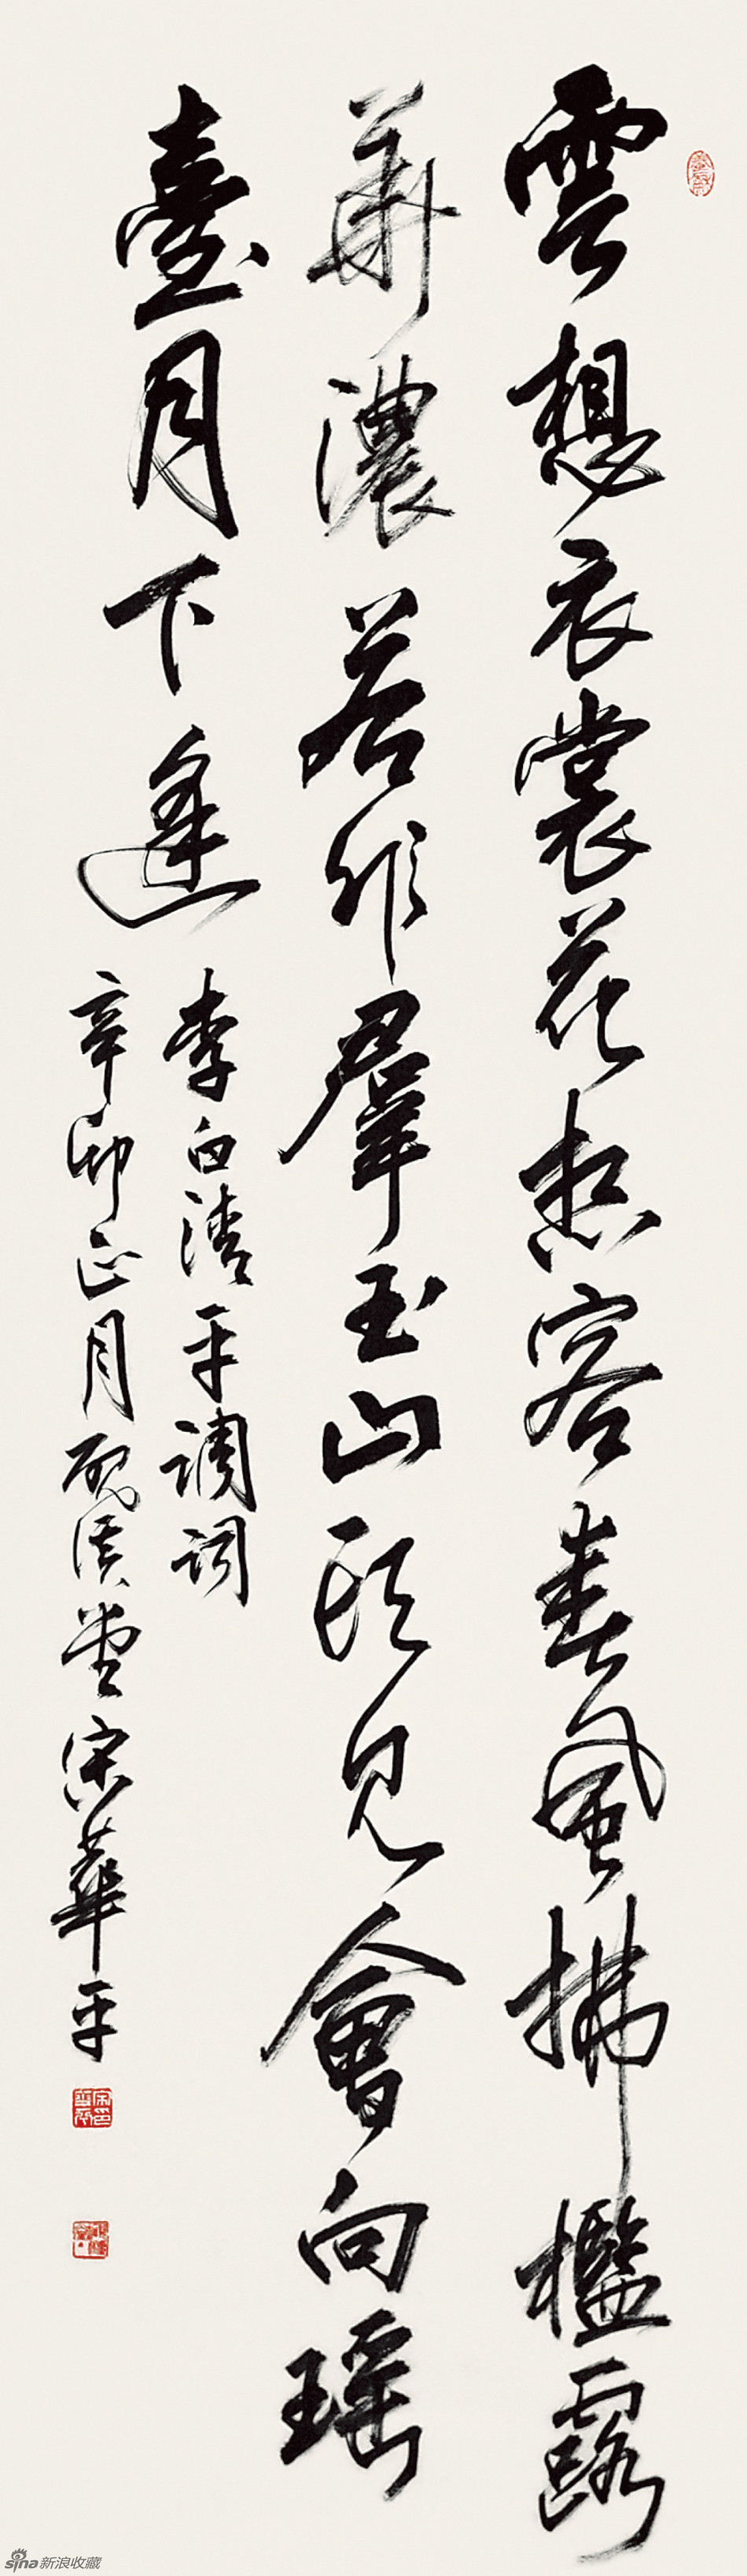 雲想衣裳花想容春風拂檻露
華濃若非羣玉山頭見會向瑶
臺月下逢
李白清平調詞
辛卯正月堂宋華平
sina新浪收藏